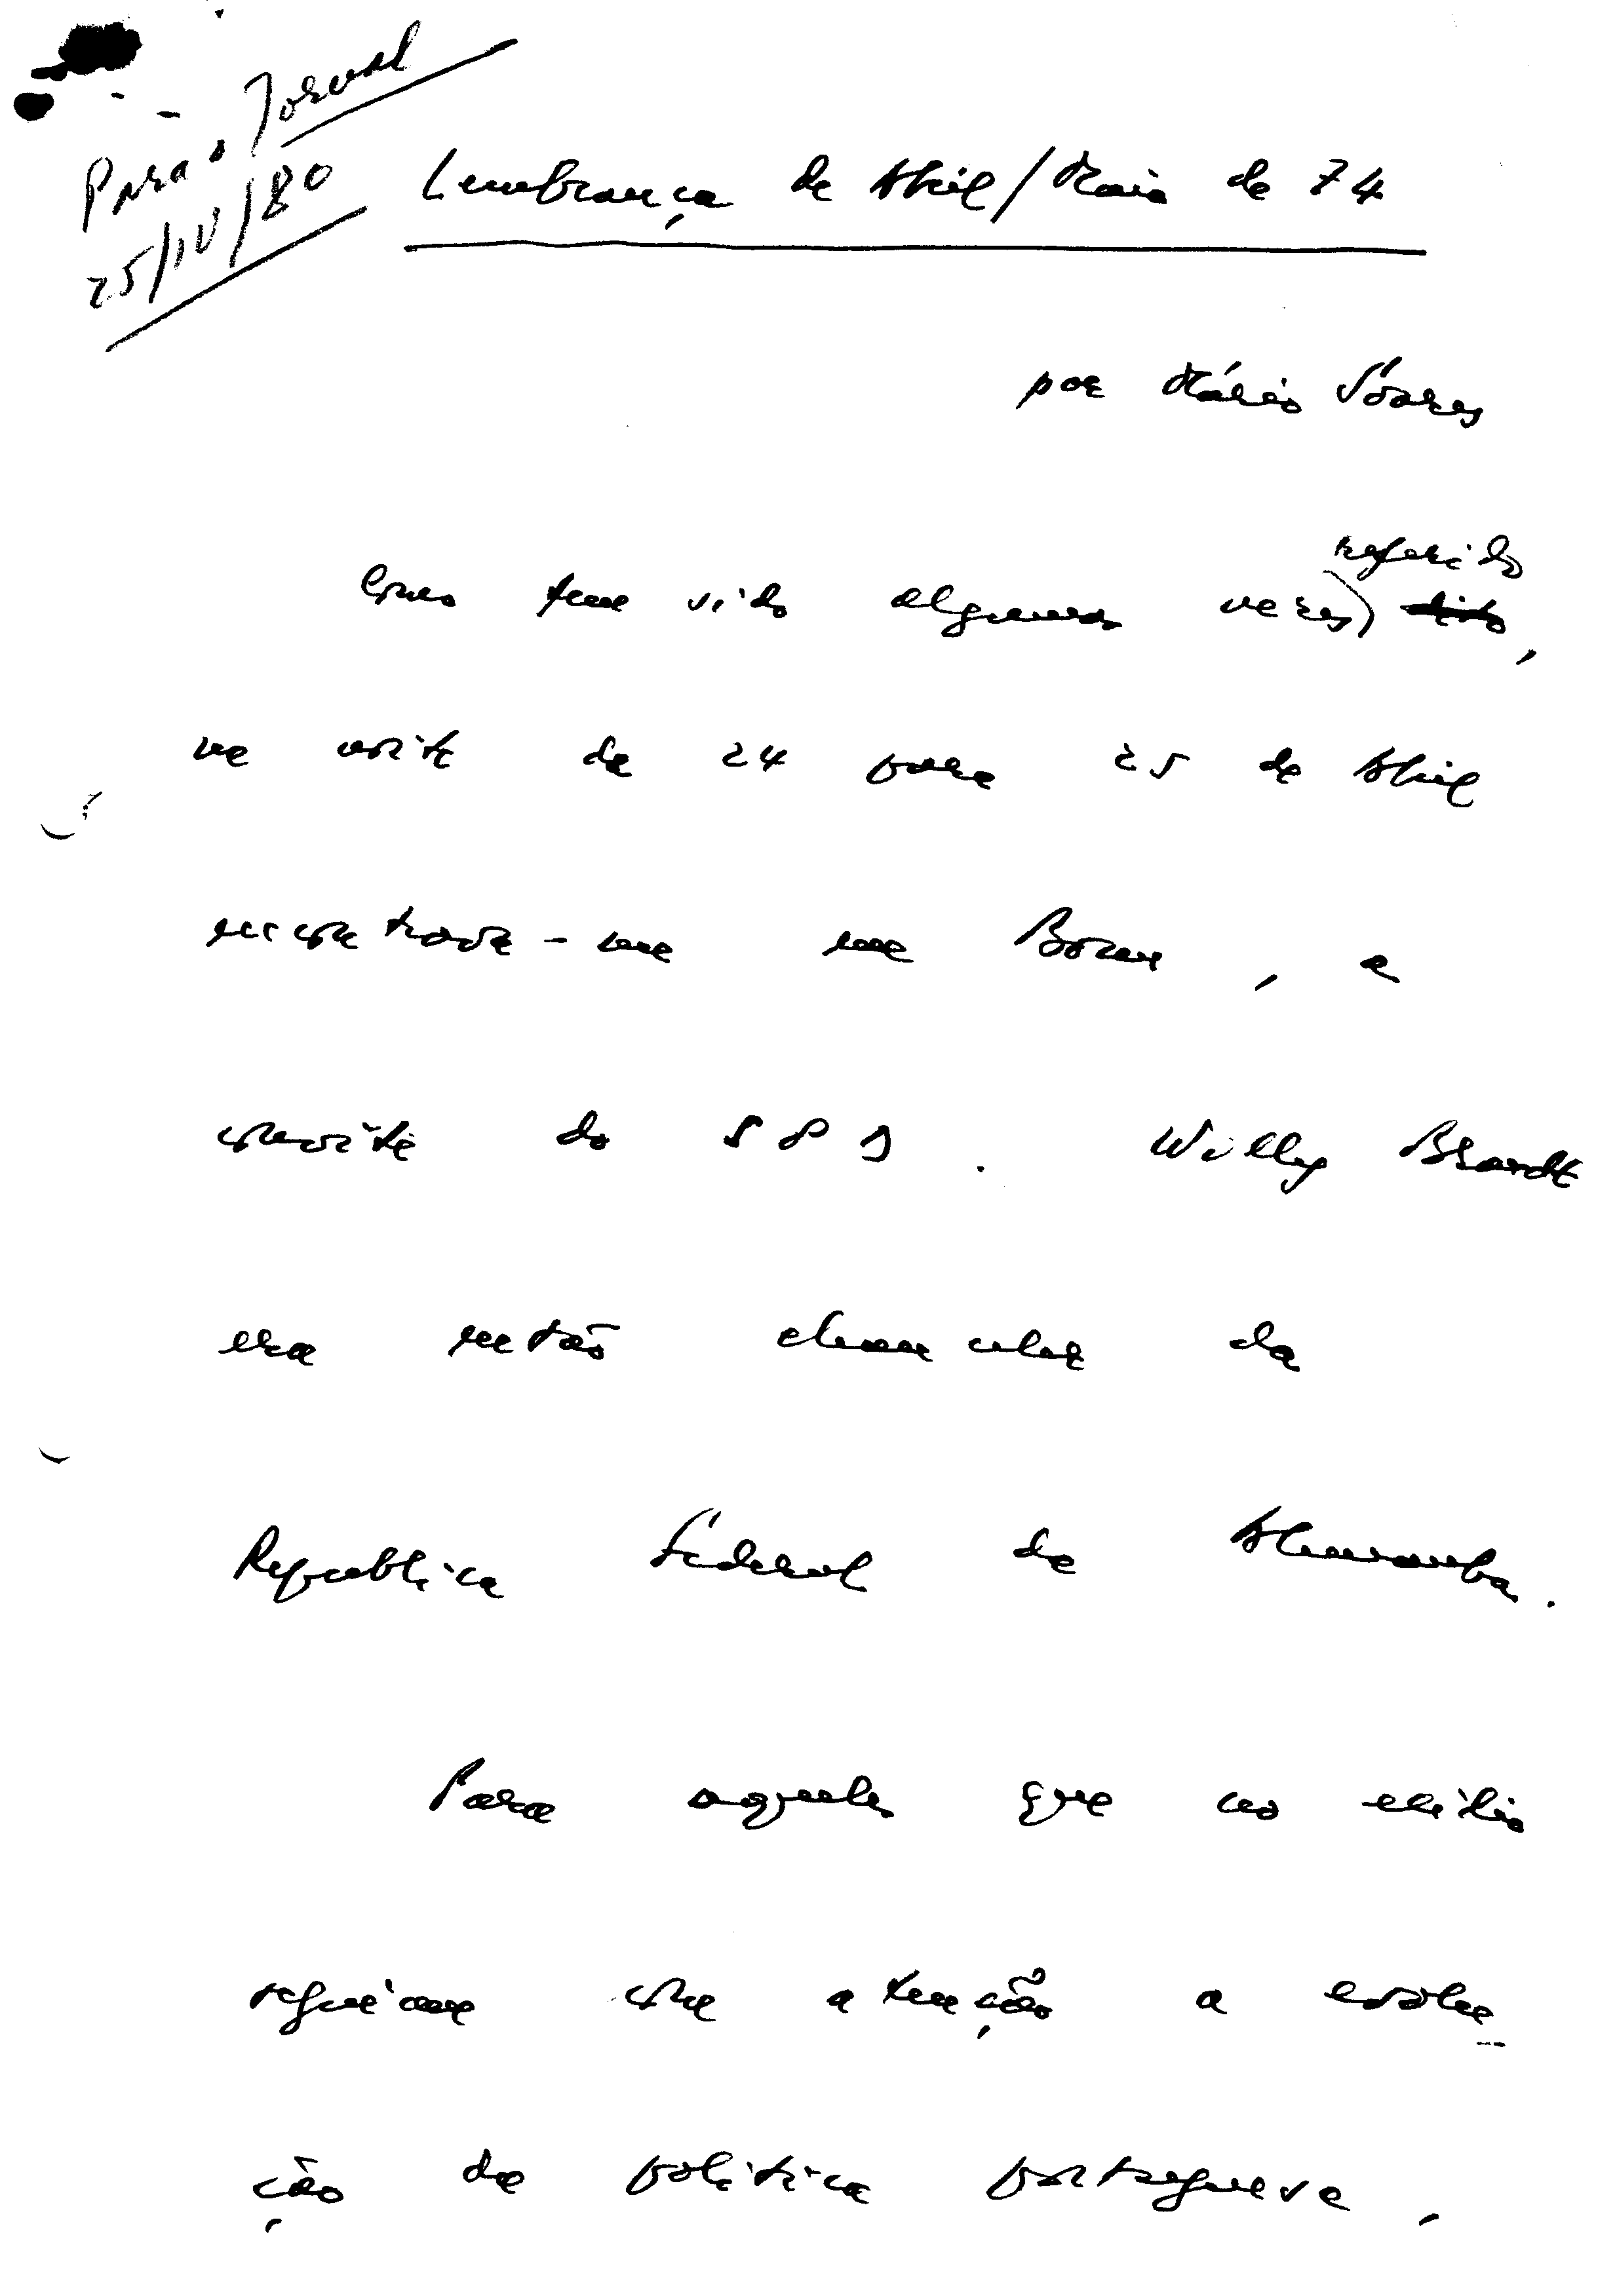 Para o Jornal
25/IV/80
Lembrança de Abril/Maio de 74
por Mário Soares
referido
Como tem sido algumas vezes) dito,
na noite de 24 para 25 de Abril
encontrava-me em Bona, a
convite do SPD. Willy Brandt
era então chanceler da
República Federal da Alemanha.
Para aqueles que no exílio
seguiam com atenção a evolu-
ção da política portuguesa,